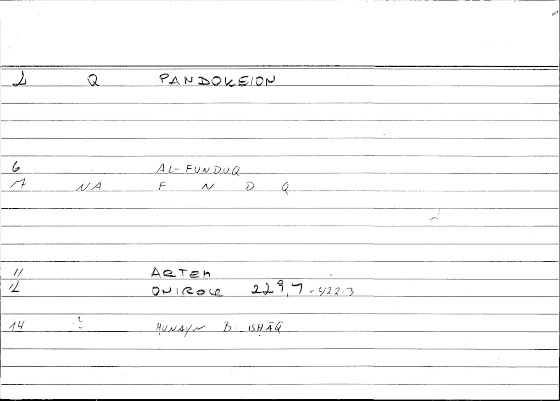 1 Q PANDOKEION
6 AL-FUNDUQ
7 NA F N D Q
11 ARTEM
12 ONIROCR 229,7 = 422.3
14 ? HUNAYN B. ISHĀQ